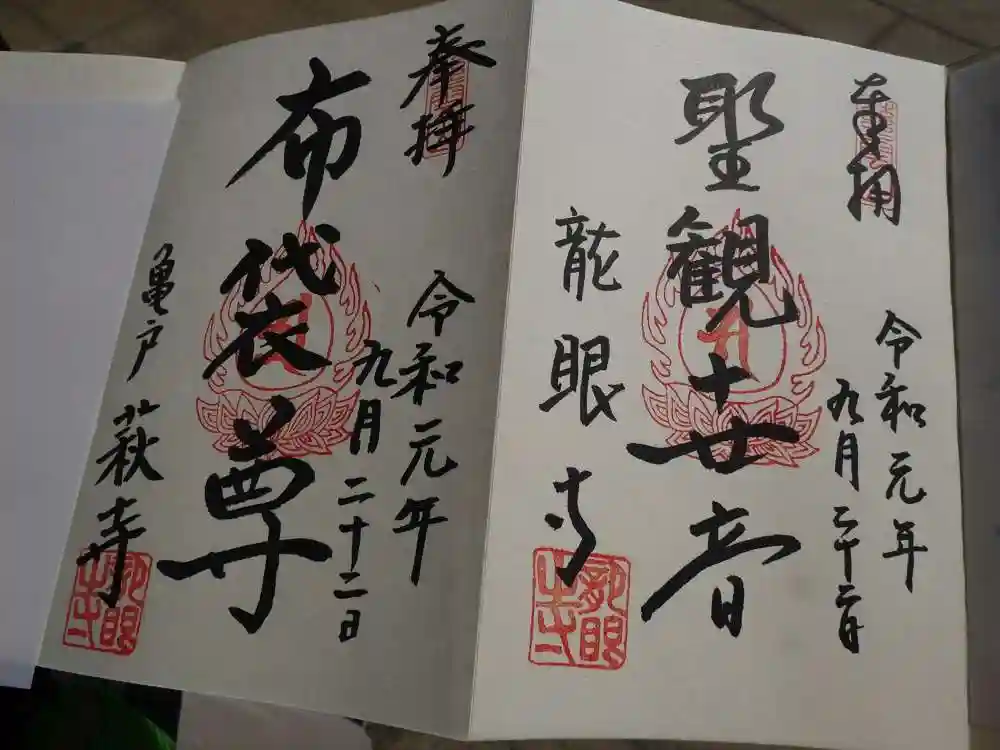 奉拝
令和元年
九月二十二日
聖観世音
龍眼寺
奉拝
令和元年
九月二十二日
布袋尊
亀戸 萩寺